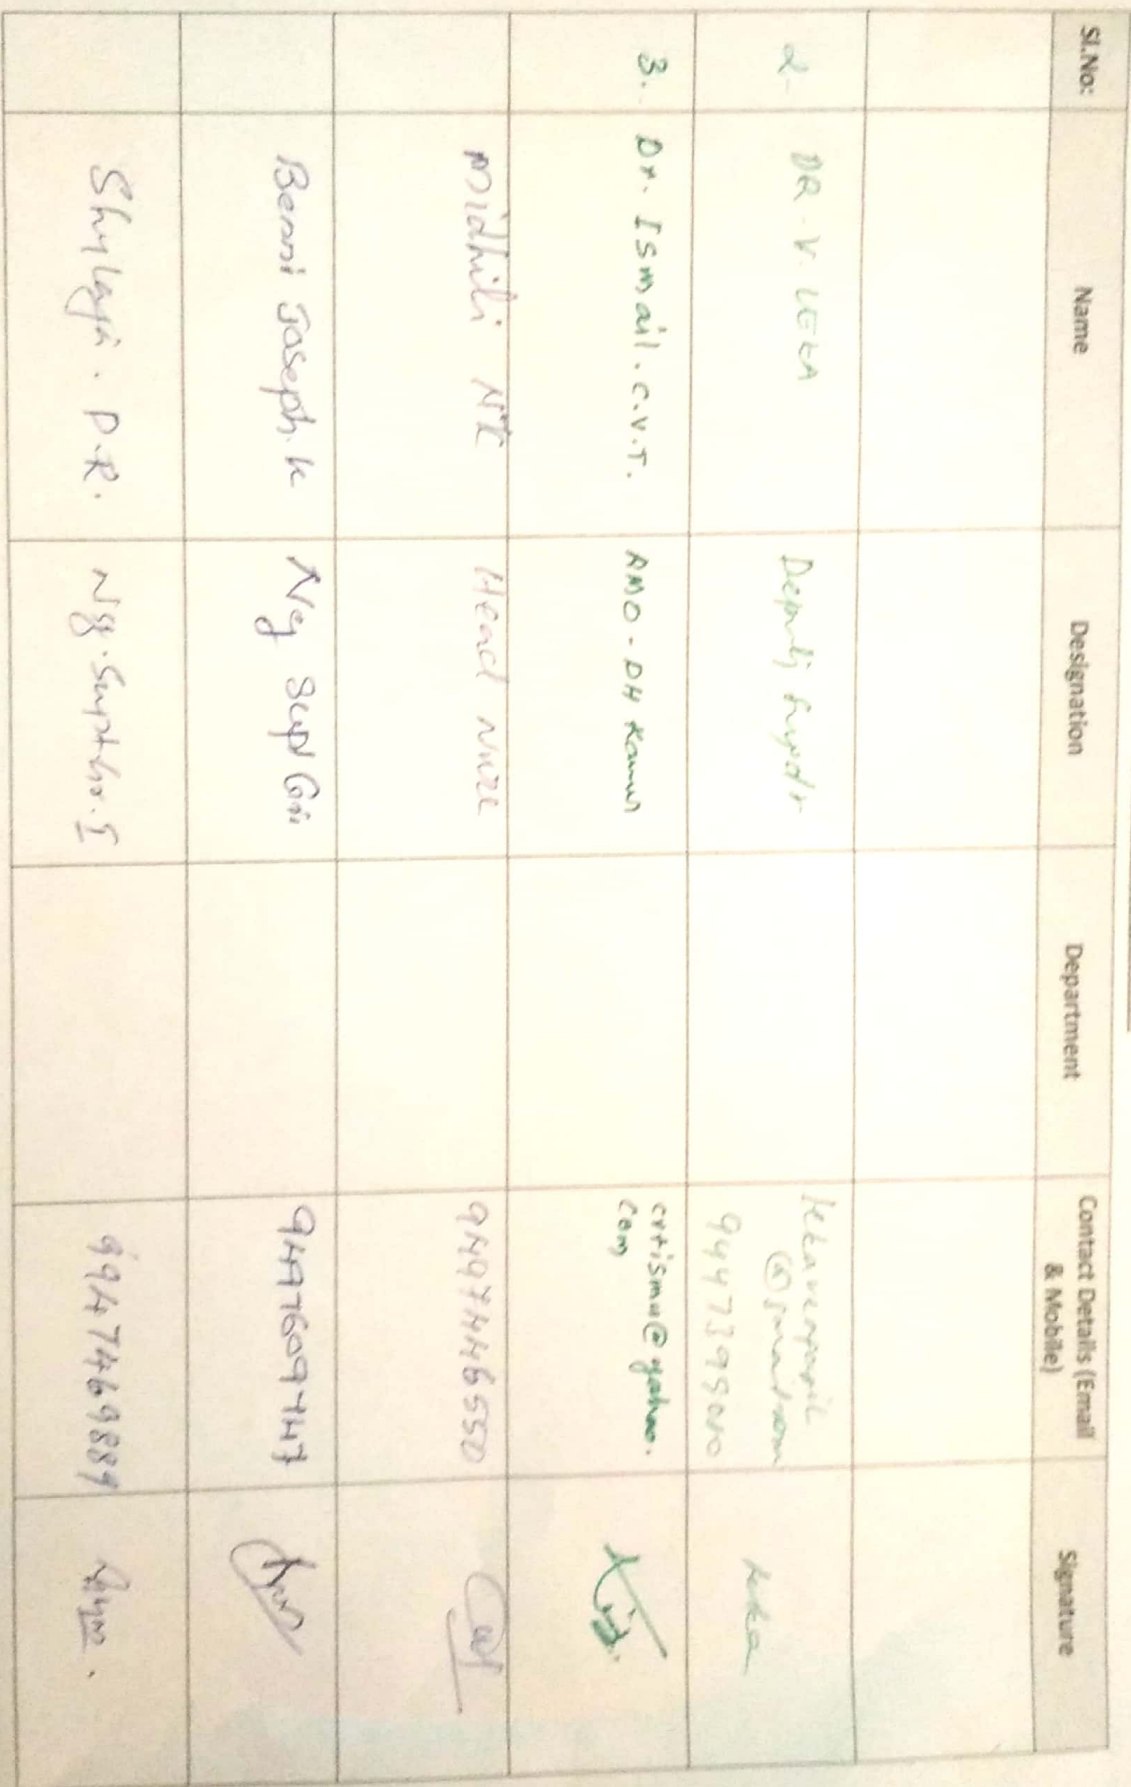 Sl.No: Name Designation Department Contact Details (Email & Mobile) Signature
2. DR. V. LEKA Deputy Supdt
@gmail.com
3. Dr. Ismail. C.V.T. RMO - DH Kannur cvtismu@yahoo.
com
Midhili NK Head Nurse 9497446550
Benni Joseph. K Nsg Supt Gr I 9497609747
Shylaja. P.R. Nsg. Supt Gr. I 9947469889